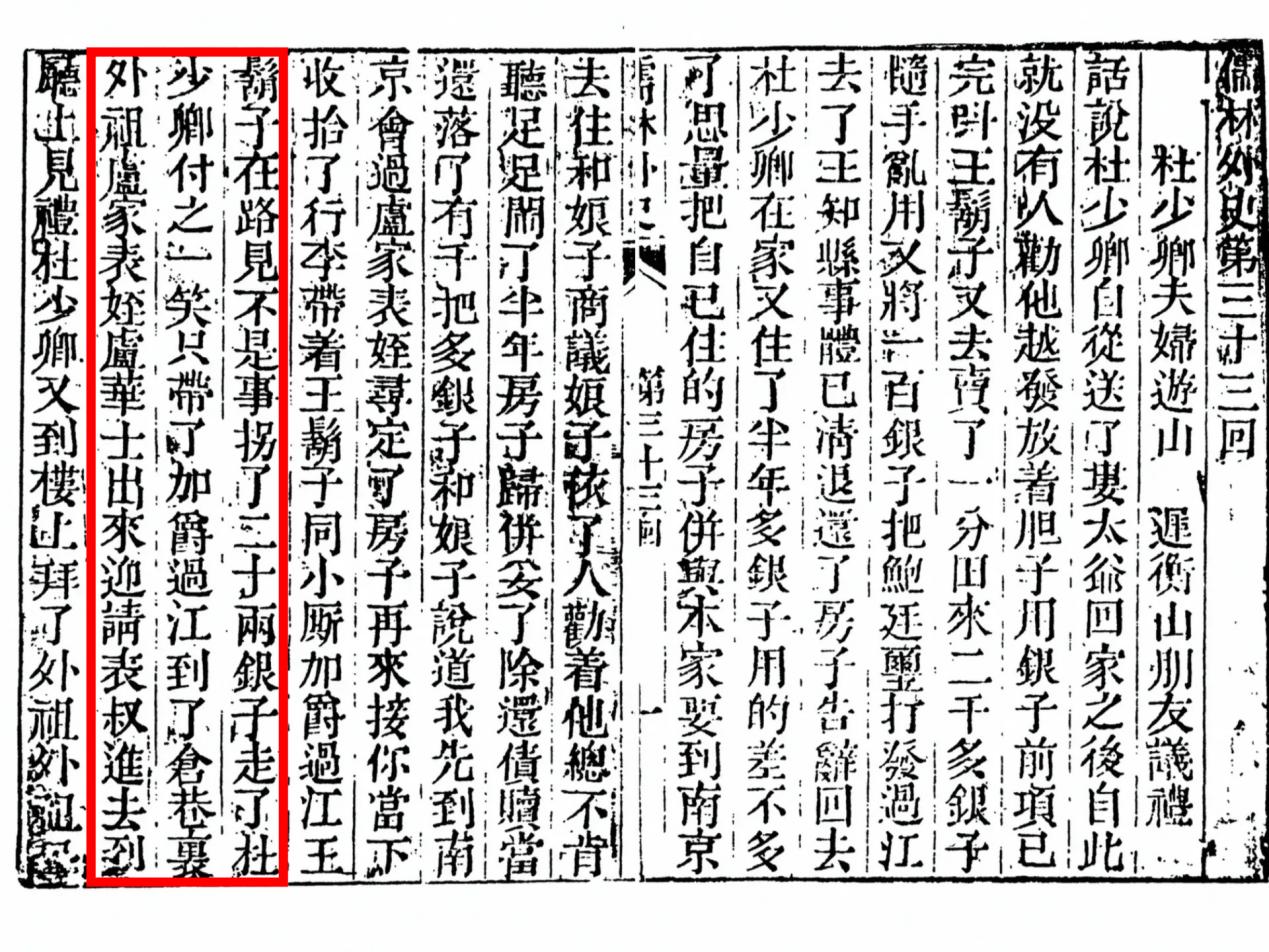 儒林外史第三十三回
杜少卿夫婦遊山　遲衡山朋友議禮
話說杜少卿自從送了婁太爺回家之後自此
就没有人勸他越發放着胆子用銀子前項已
完叫王鬍子又去賣了一分田來二千多銀子
隨手亂用又將一百銀子把鮑廷璽打發過江
去了王知縣事體已清退還了房子告辭回去
杜少卿在家又住了半年多銀子用的差不多
了思量把自已住的房子併與本家要到南京
儒林外史　第三十三回　一
去住和娘子商議娘子依了人勸着他總不肯
聽足足鬧了半年房子歸併妥了除還債贖當
還落了有千把多銀子和娘子說道我先到南
京會過盧家表姪尋定了房子再來接你當下
收拾了行李帶着王鬍子同小厮加爵過江王
鬍子在路見不是事拐了二十兩銀子走了杜
少卿付之一笑只帶了加爵過江到了倉巷裏
外祖盧家表姪盧華士出來迎請表叔進去到
廳上見禮杜少卿又到樓上拜了外祖外